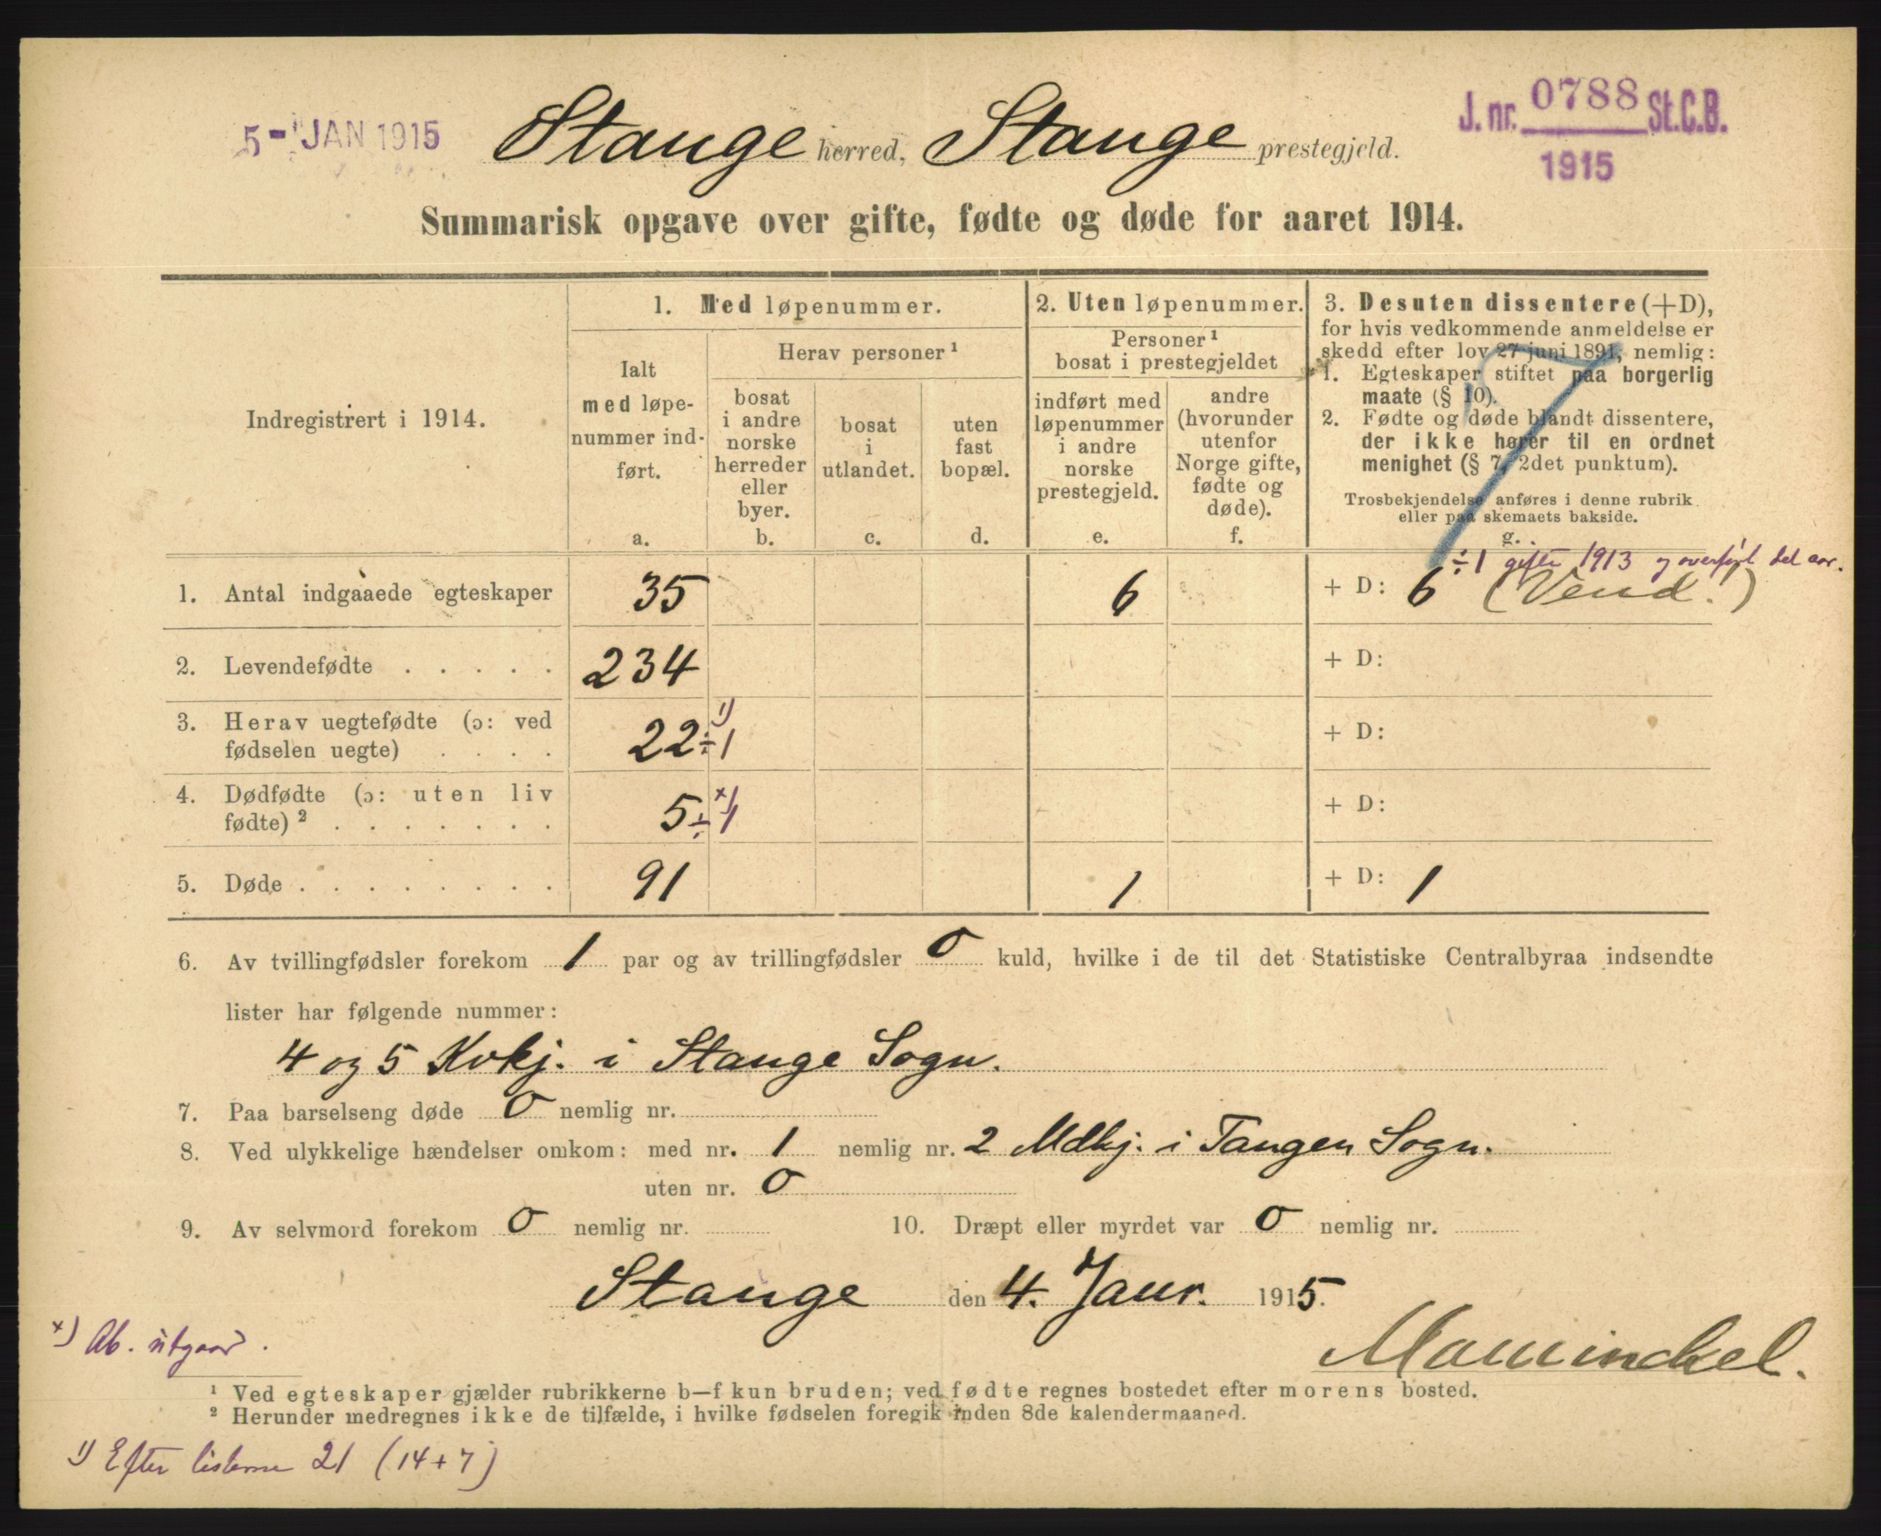 5 - JAN 1915
Stange herred, Stange prestegjeld.
J. nr. 0788 St.C.B.
1915
Summarisk opgave over gifte, fødte og døde for aaret 1914.
Indregistrert i 1914.
1. Med løpenummer.
Ialt
med løpe-
nummer ind-
ført.
a.
Herav personer ¹
bosat
i andre
norske
herreder
eller
byer.
b.
bosat
i
utlandet.
c.
uten
fast
bopæl.
d.
2. Uten løpenummer.
Personer ¹
bosat i prestegjeldet
indført med
løpenummer
i andre
norske
prestegjeld.
e.
andre
(hvorunder
utenfor
Norge gifte,
fødte og
døde).
f.
3. Desuten dissentere (+D),
for hvis vedkommende anmeldelse er
skedd efter lov 27 juni 1891, nemlig:
1. Egteskaper stiftet paa borgerlig
maate (§ 10).
2. Fødte og døde blandt dissentere,
der ikke hører til en ordnet
menighet (§ 7, 2det punktum).
Trosbekjendelse anføres i denne rubrik
eller paa skemaets bakside.
g.
÷1 gifte 1913 og overført det aar.
1. Antal indgaaede egteskaper 35 6 + D: 6 (Vend.)
2. Levendefødte . . . . . 234 + D:
3. Herav uegtefødte (ɔ: ved
fødselen uegte) . . . . 22 ÷1 ¹) + D:
4. Dødfødte (ɔ: uten liv
fødte) ² . . . . . . . 5 ÷1 ˣ) + D:
5. Døde . . . . . . . . 91 1 + D: 1
6. Av tvillingfødsler forekom 1 par og av trillingfødsler 0 kuld, hvilke i de til det Statistiske Centralbyraa indsendte
lister har følgende nummer:
4 og 5 Kvkj. i Stange Sogn.
7. Paa barselseng døde 0 nemlig nr.
8. Ved ulykkelige hændelser omkom: med nr. 1 nemlig nr. 2 Mdkj. i Tangen Sogn.
uten nr. 0
9. Av selvmord forekom 0 nemlig nr.
10. Dræpt eller myrdet var 0 nemlig nr.
Stange den 4. Janr. 1915.
ˣ) Ab. utgaar.
¹ Ved egteskaper gjælder rubrikkerne b—f kun bruden; ved fødte regnes bostedet efter morens bosted.
² Herunder medregnes ikke de tilfælde, i hvilke fødselen foregik inden 8de kalendermaaned.
¹) Efter listerne 21 (14 + 7)